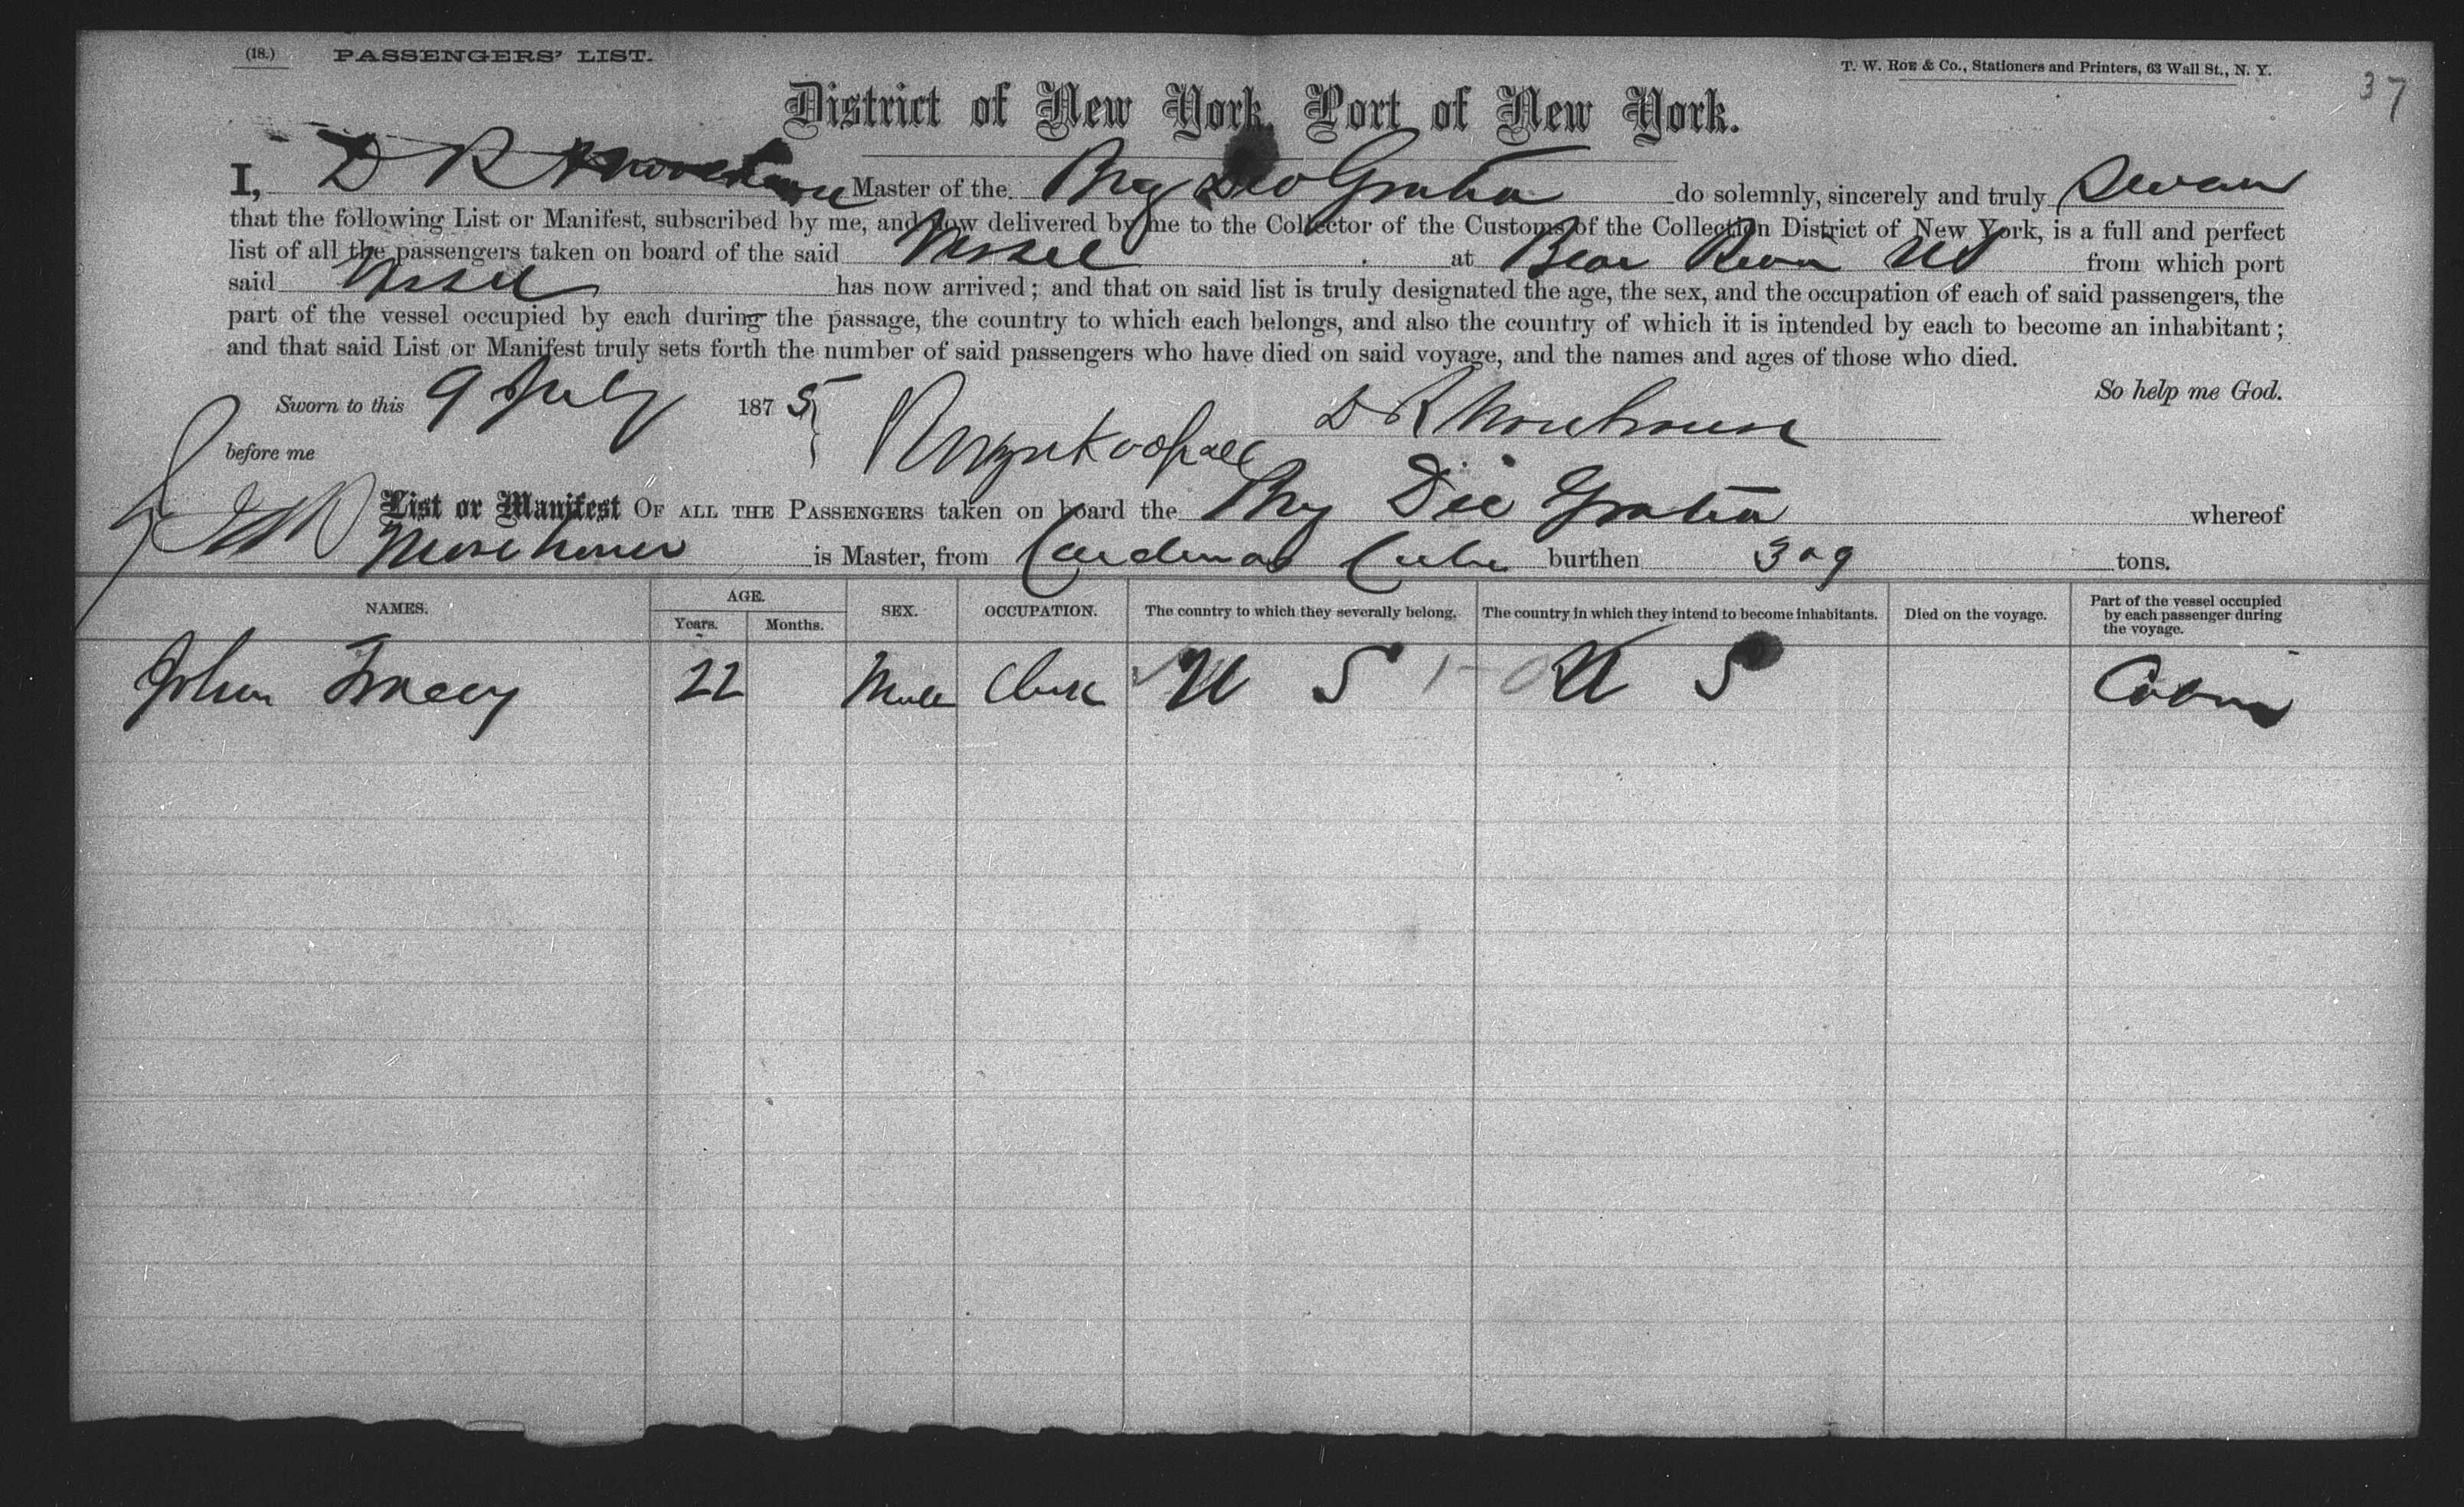 (18.) PASSENGERS' LIST. T. W. ROE & Co., Stationers and Printers, 63 Wall St., N. Y. 37
District of New York, Port of New York.
I, D R Morehouse Master of the Brg Deo Gratia do solemnly, sincerely and truly Swear
that the following List or Manifest, subscribed by me, and now delivered by me to the Collector of the Customs of the Collection District of New York, is a full and perfect
list of all the passengers taken on board of the said Vessel at Bear River NS from which port
said Vessel has now arrived; and that on said list is truly designated the age, the sex, and the occupation of each of said passengers, the
part of the vessel occupied by each during the passage, the country to which each belongs, and also the country of which it is intended by each to become an inhabitant;
and that said List or Manifest truly sets forth the number of said passengers who have died on said voyage, and the names and ages of those who died.
So help me God.
Sworn to this 9 July 1875 D R Morehouse
before me
List or Manifest OF ALL THE PASSENGERS taken on board the Brg Dei Gratia whereof
Morehouse is Master, from Cardenas Cuba burthen 309 tons.
NAMES. AGE. Years. Months. SEX. OCCUPATION. The country to which they severally belong. The country in which they intend to become inhabitants. Died on the voyage. Part of the vessel occupied by each passenger during the voyage.
John Tracey 22 Male Clerk U S U S Cabin